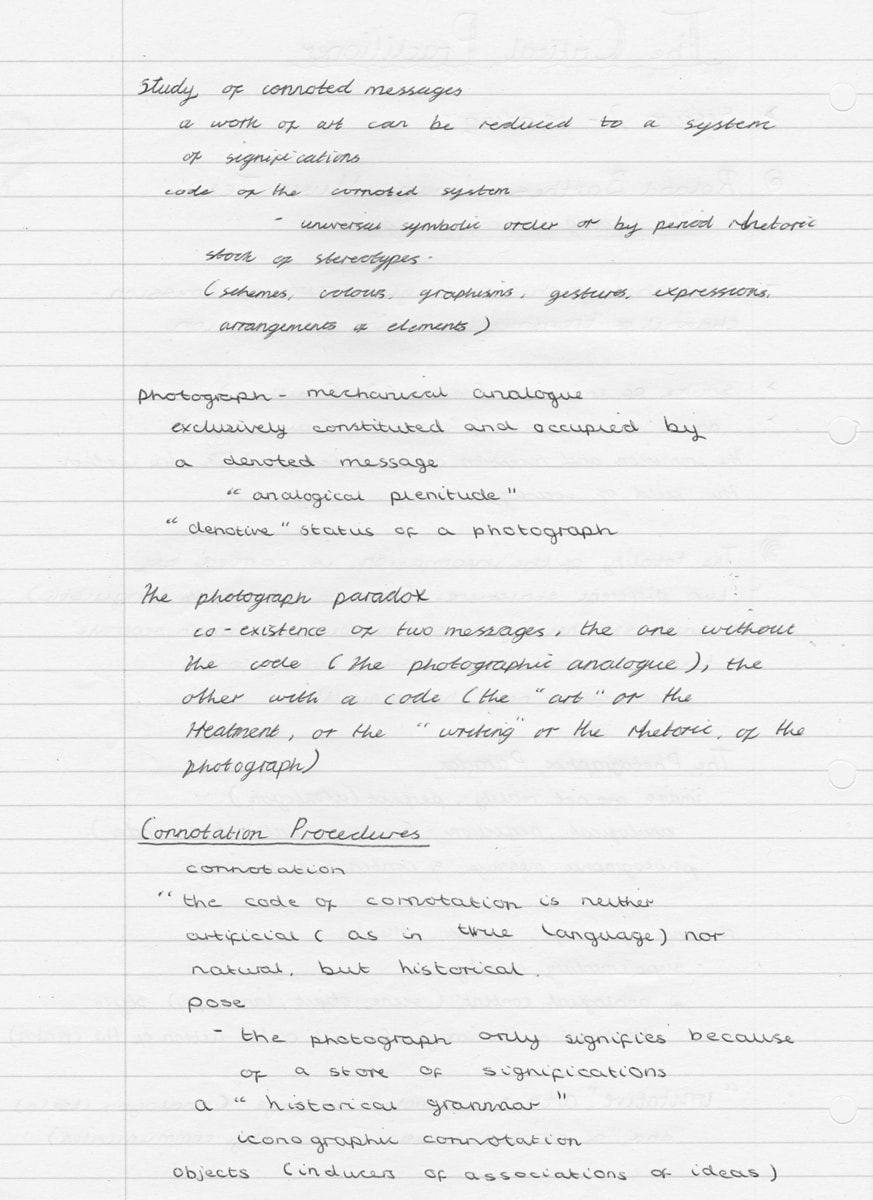 Study of connoted messages
a work of art can be reduced to a system
of significations
code of the connoted system
- universal symbolic order or by period rhetoric
stock of stereotypes.
(schemes, colours, graphisms, gestures, expressions,
arrangements of elements)
photograph - mechanical analogue
exclusively constituted and occupied by
a denoted message
"analogical plenitude"
"denotive" status of a photograph
The photograph paradox
co-existence of two messages, the one without
the code (the photographic analogue), the
other with a code (the "art" or the
treatment, or the "writing" or the rhetoric, of the
photograph)
Connotation Procedures
connotation
"the code of connotation is neither
artificial (as in true language) nor
natural, but historical.
pose
- the photograph only signifies because
of a store of significations
a "historical grammar"
iconographic connotation
objects (inducers of associations of ideas)